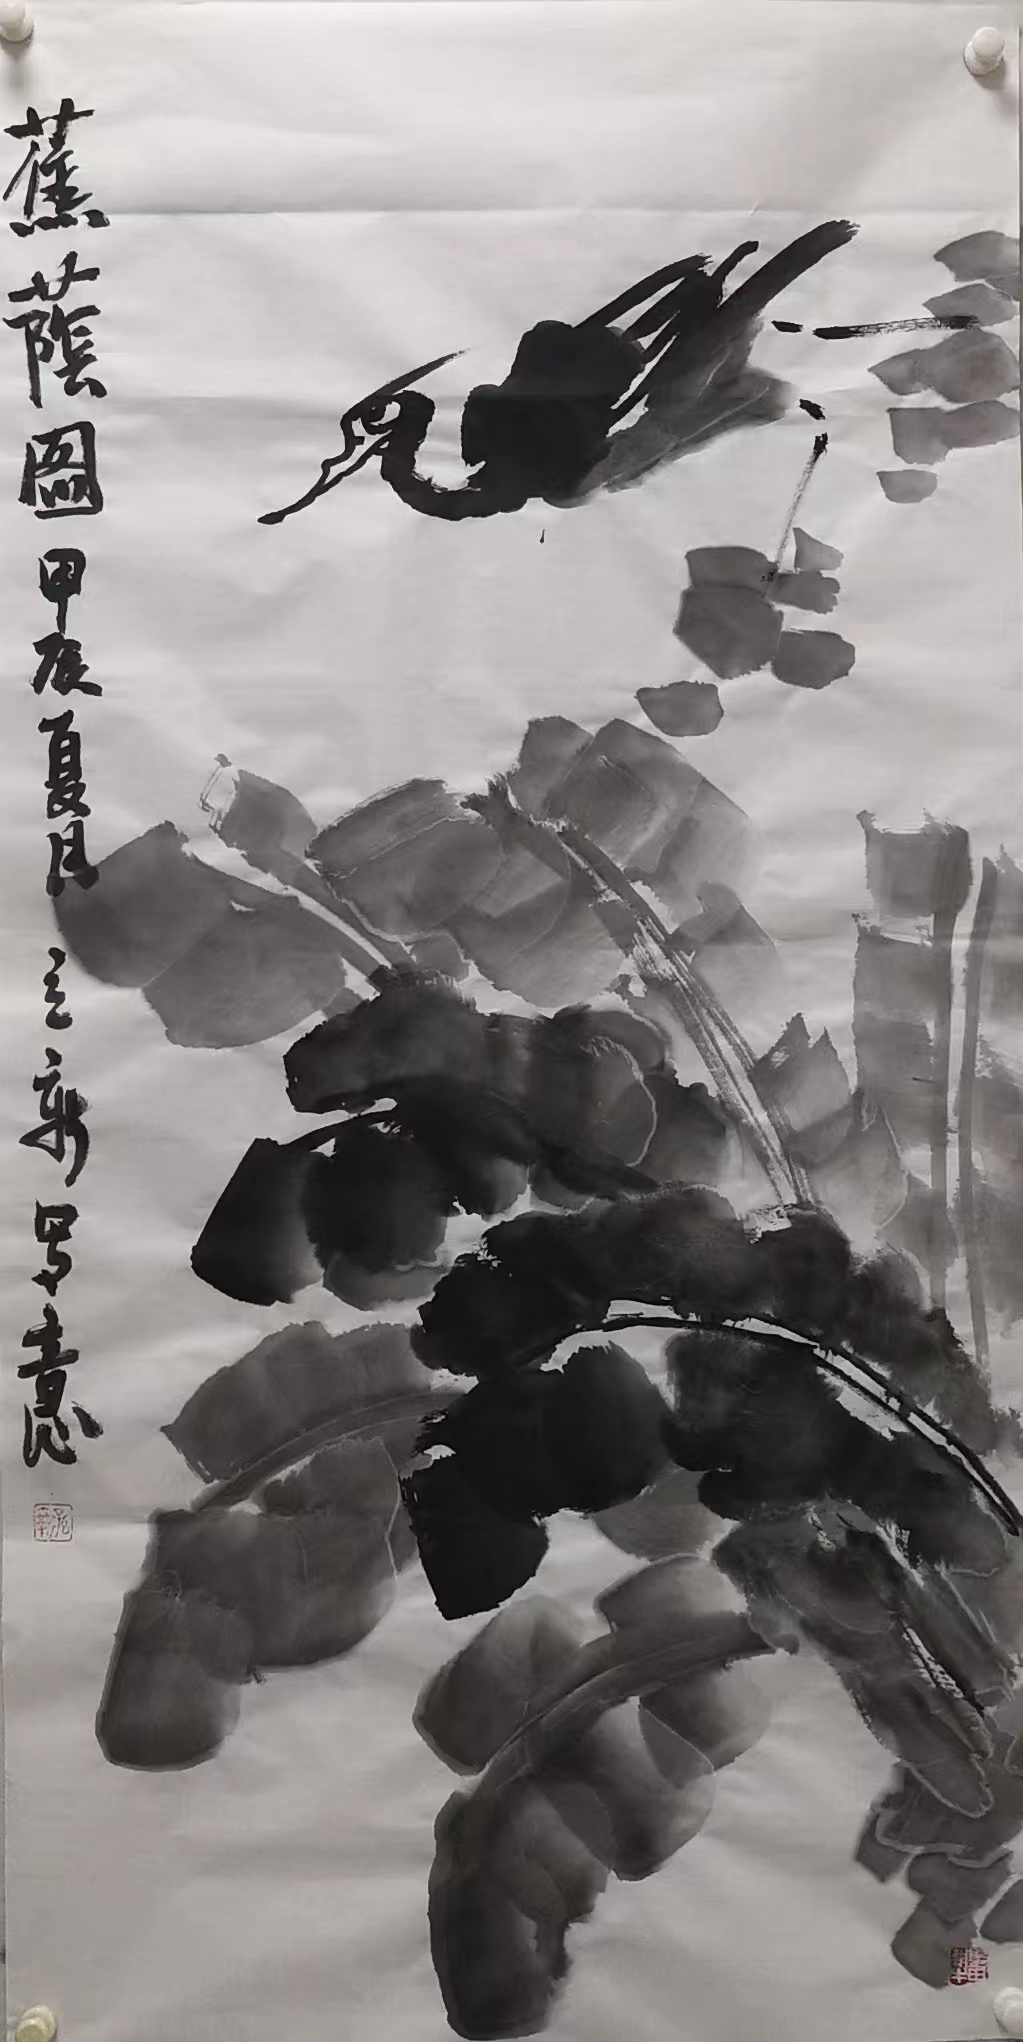 蕉蔭圖甲辰夏月立新写意